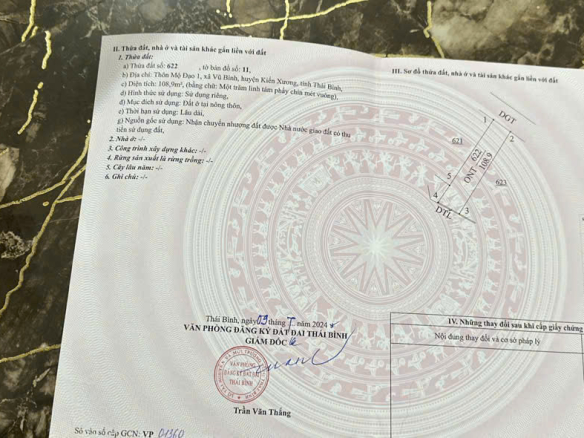 II. Thửa đất, nhà ở và tài sản khác gắn liền với đất
1. Thửa đất:
a) Thửa đất số: 622 , tờ bản đồ số: 11,
b) Địa chỉ: Thôn Mộ Đạo 1, xã Vũ Bình, huyện Kiến Xương, tỉnh Thái Bình,
c) Diện tích: 108,9m², (bằng chữ: Một trăm linh tám phẩy chín mét vuông),
d) Hình thức sử dụng: Sử dụng riêng,
đ) Mục đích sử dụng: Đất ở tại nông thôn,
e) Thời hạn sử dụng: Lâu dài,
g) Nguồn gốc sử dụng: Nhận chuyển nhượng đất được Nhà nước giao đất có thu
tiền sử dụng đất,
2. Nhà ở: -/-
3. Công trình xây dựng khác: -/-
4. Rừng sản xuất là rừng trồng: -/-
5. Cây lâu năm: -/-
6. Ghi chú: -/-
III. Sơ đồ thửa đất, nhà ở và tài sản khác gắn liền với đất
ĐGT
1
2
621
ONT 622
108.9
623
5
4
3
DTL
Thái Bình, ngày 09 tháng 7 năm 2024
VĂN PHÒNG ĐĂNG KÝ ĐẤT ĐAI THÁI BÌNH
GIÁM ĐỐC
VĂN PHÒNG
ĐĂNG KÝ ĐẤT ĐAI
THÁI BÌNH
Trần Văn Thắng
IV. Những thay đổi sau khi cấp giấy chứng
Nội dung thay đổi và cơ sở pháp lý
Số vào sổ cấp GCN: VP 01360